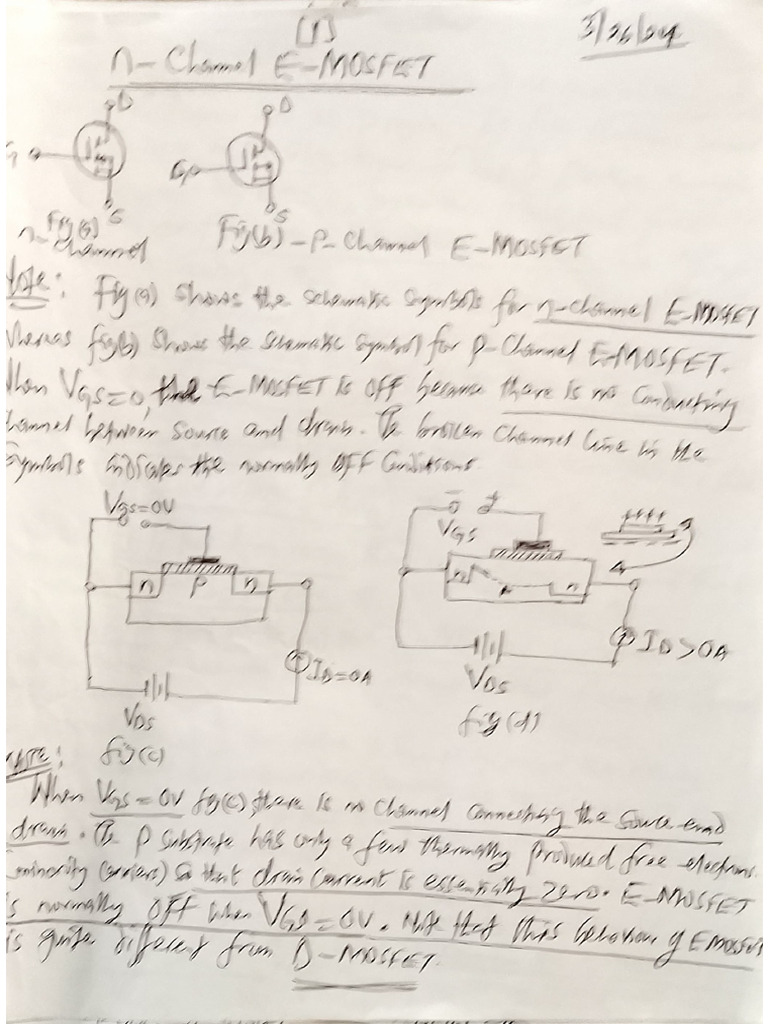 (1)
3/26/24
n-Channel E-MOSFET
D
D
G
S
S
Fig(a)
n-Channel
Fig(b) - P-Channel E-MOSFET
Note: Fig(a) shows the schematic symbols for n-channel E-MOSFET
Whereas fig(b) shows the schematic symbol for P-Channel E-MOSFET.
When VGS=0, the E-MOSFET is off because there is no conducting
channel between source and drain. The broken channel line in the
symbols indicates the normally OFF conditions.
Vgs=0V
VGS
n P n
n n
ID=0A
ID>0A
VDS
VDS
fig(c)
fig(d)
NOTE:
When Vgs=0V fig(c) there is no channel connecting the source and
drain. The P substrate has only a few thermally produced free electrons
minority carriers) so that drain current is essentially zero. E-MOSFET
is normally OFF when VGS=0V. Note that this behaviour of EMOSFET
is quite different from D-MOSFET.